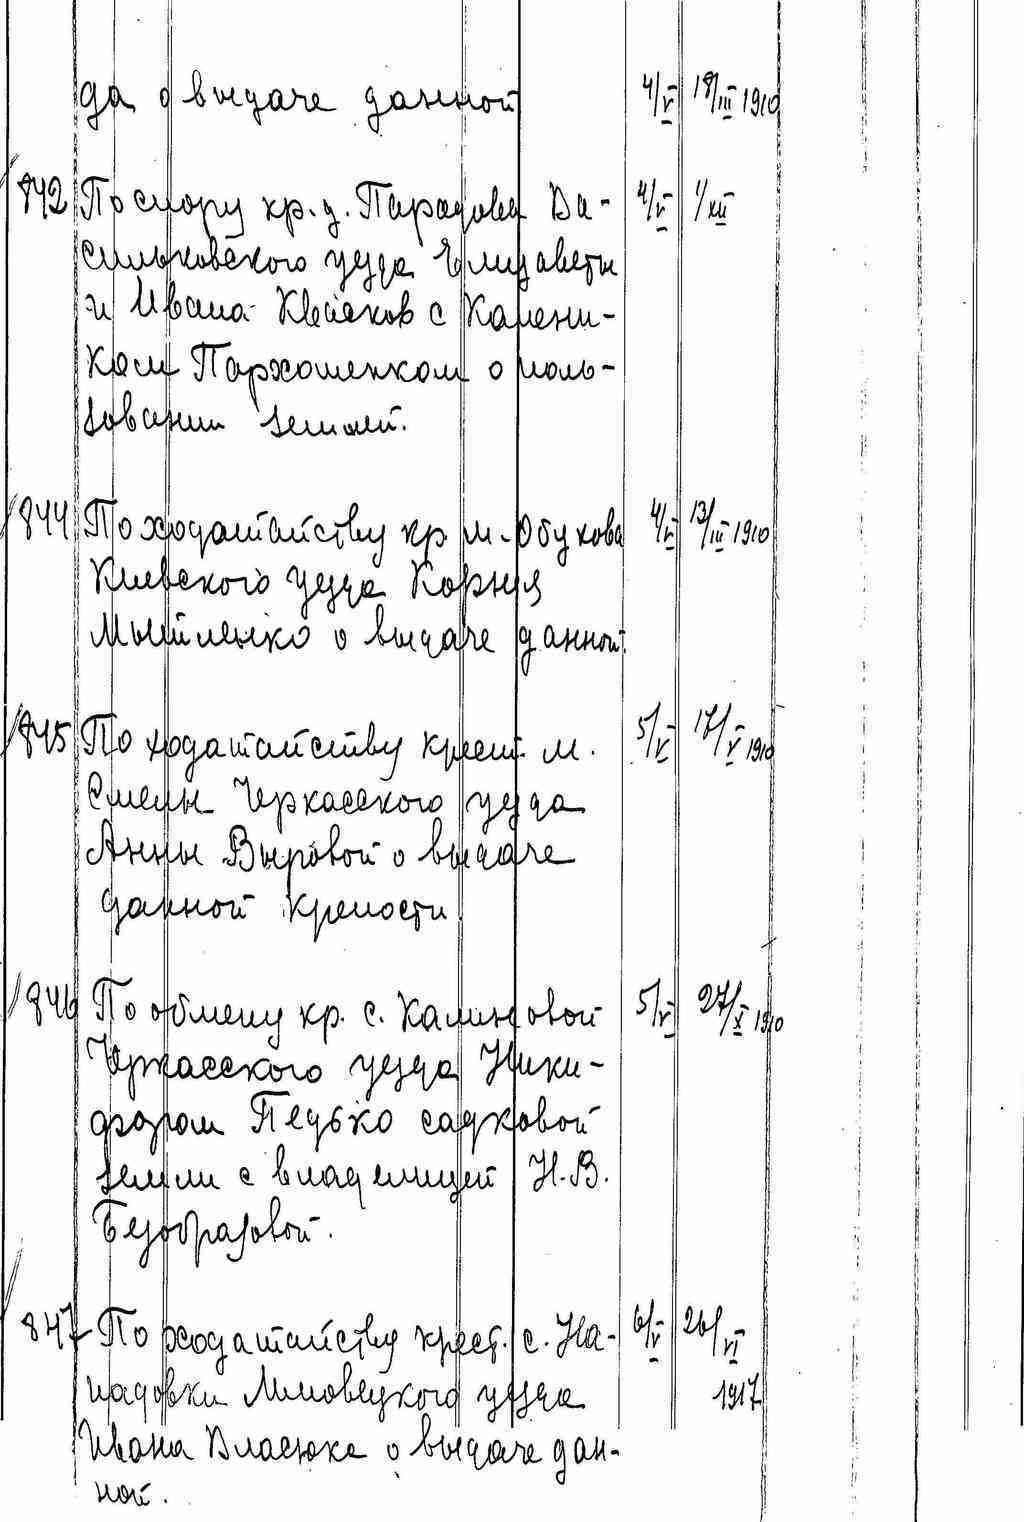 да о выдаче данной 4/V 18/III 1910
842 По спору кр. д. Парадова Ва- 4/V 1/XII
сильковского уезда Елизаветы
и Ивана Квасков с Калени-
ком Пархоменком о поль-
зовании землей.
844 По ходатайству кр. м. Обухова 4/V 13/III 1910
Киевского уезда Корнея
о выдаче данной.
845 По ходатайству крест. м. 5/V 17/V 1910
Смелы Черкасского уезда
Анны Выровой о выдаче
данной крепости.
846 По обмену кр. с. Калиновой 5/V 27/X 1910
Черкасского уезда Ники-
фором Педько садковой
земли с владелицей Н. В.
Безобразовой.
847 По ходатайству крест. с. На- 6/V 26/VI
падовки Липовецкого уезда 1917
Ивана Власюка о выдаче дан-
ной.